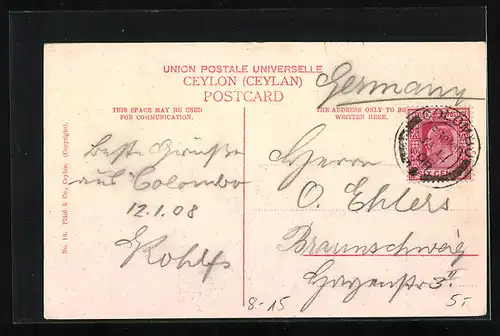 UNION POSTALE UNIVERSELLE
CEYLON (CEYLAN)
POSTCARD
Germany
THIS SPACE MAY BE USED
FOR COMMUNICATION.
THE ADDRESS ONLY TO BE
WRITTEN HERE.
Beste Grüße
aus Colombo
12.1.08
Kohlfs
Herrn
O. Ehlers
Braunschweig
3II
8-15
5.-
No. 19. Plâté & Co., Ceylon. (Copyright).
SIX CEN